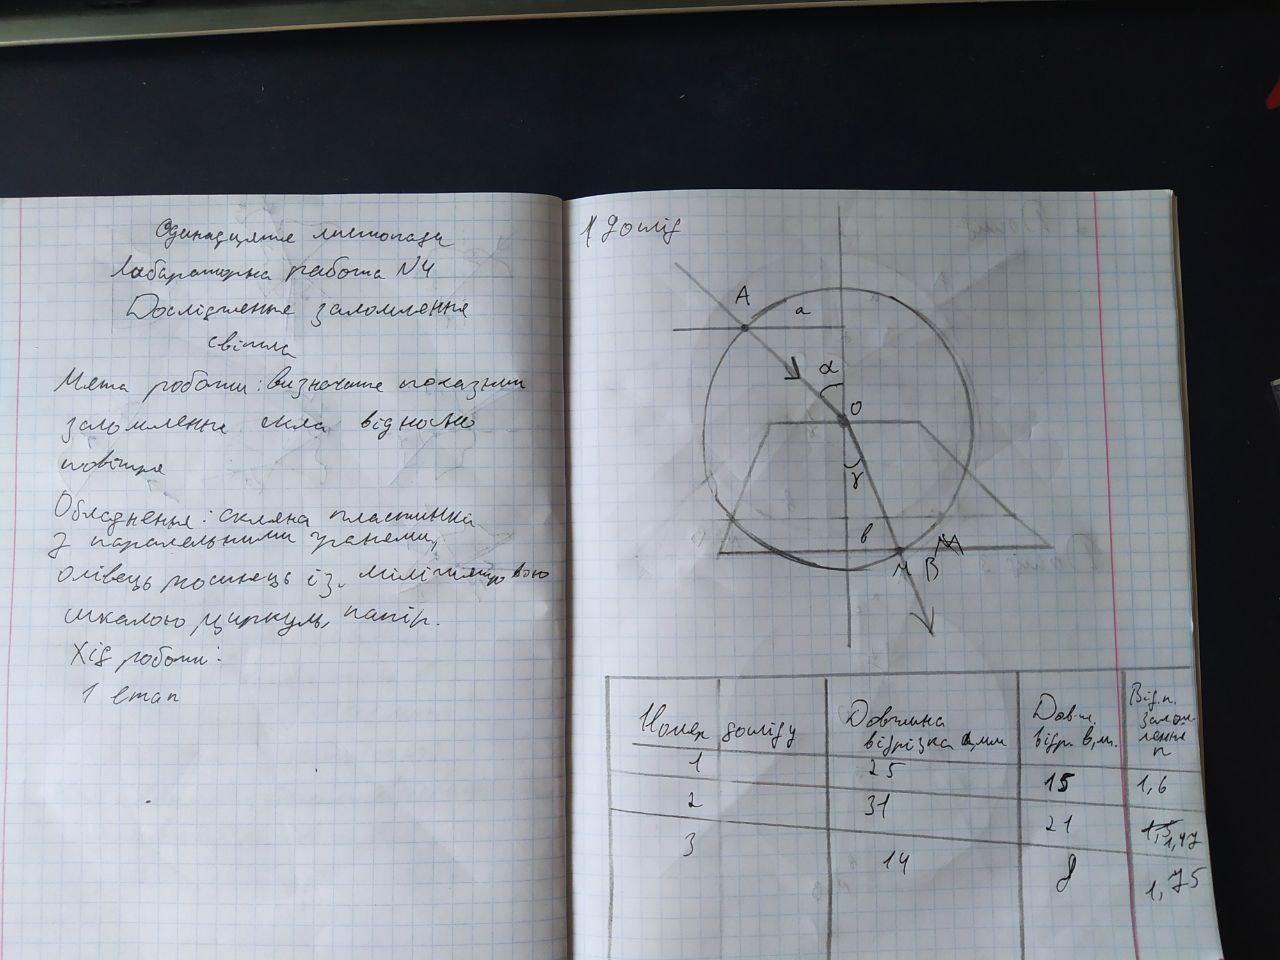 Одинадцяте листопада
Лабараторна работа N4
Дослідження заломлення
світла
Мета роботи: визначите показник
заломлення скла відносно
повітря
Обладнення: скляна пластинка
з паралельними гранеми,
олівець косинець із міліметровою
шкалою, циркуль, папір.
Хід роботи:
1 етап
1 дослід
A
a
α
O
γ
в
М В
Номер досліду
Довжина відрізка а,мм
Довж. відр. в,м.
Від.п. залом-лення n
1 25 15 1,6
2 31 21 1,47
3 14 8 1,75